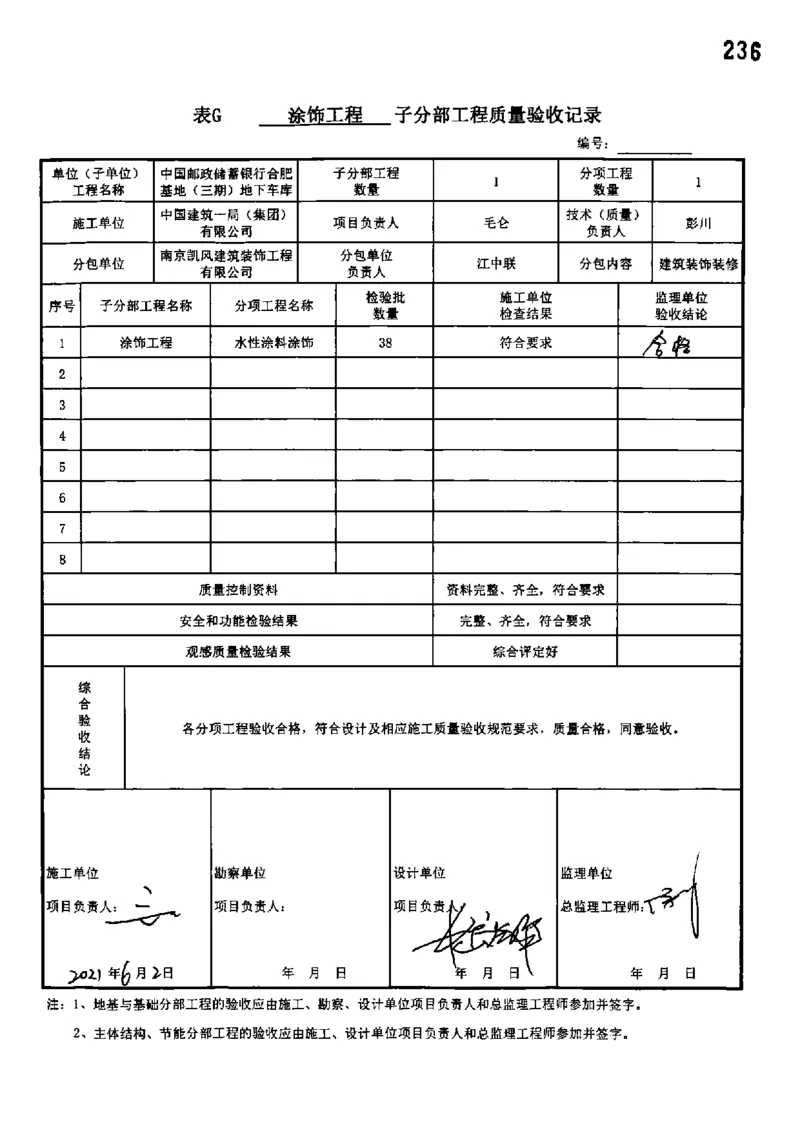 236
表G 涂饰工程 子分部工程质量验收记录
编号：
单位（子单位）工程名称 中国邮政储蓄银行合肥基地（三期）地下车库 子分部工程数量 1 分项工程数量 1
施工单位 中国建筑一局（集团）有限公司 项目负责人 毛仑 技术（质量）负责人 彭川
分包单位 南京凯风建筑装饰工程有限公司 分包单位负责人 江中联 分包内容 建筑装饰装修
序号 子分部工程名称 分项工程名称 检验批数量 施工单位检查结果 监理单位验收结论
1 涂饰工程 水性涂料涂饰 38 符合要求 合格
2
3
4
5
6
7
8
质量控制资料 资料完整、齐全，符合要求
安全和功能检验结果 完整、齐全，符合要求
观感质量检验结果 综合评定好
综合验收结论 各分项工程验收合格，符合设计及相应施工质量验收规范要求，质量合格，同意验收。
施工单位 勘察单位 设计单位 监理单位
项目负责人： 项目负责人： 项目负责人 总监理工程师：
2021年6月2日 年 月 日 年 月 日 年 月 日
注：1、地基与基础分部工程的验收应由施工、勘察、设计单位项目负责人和总监理工程师参加并签字。
2、主体结构、节能分部工程的验收应由施工、设计单位项目负责人和总监理工程师参加并签字。